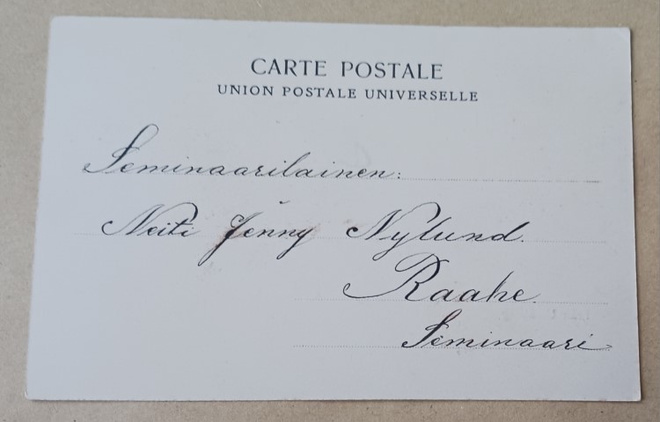 CARTE POSTALE
UNION POSTALE UNIVERSELLE
Seminaarilainen:
Neiti Jenny Nylund.
Raahe.
Seminaari